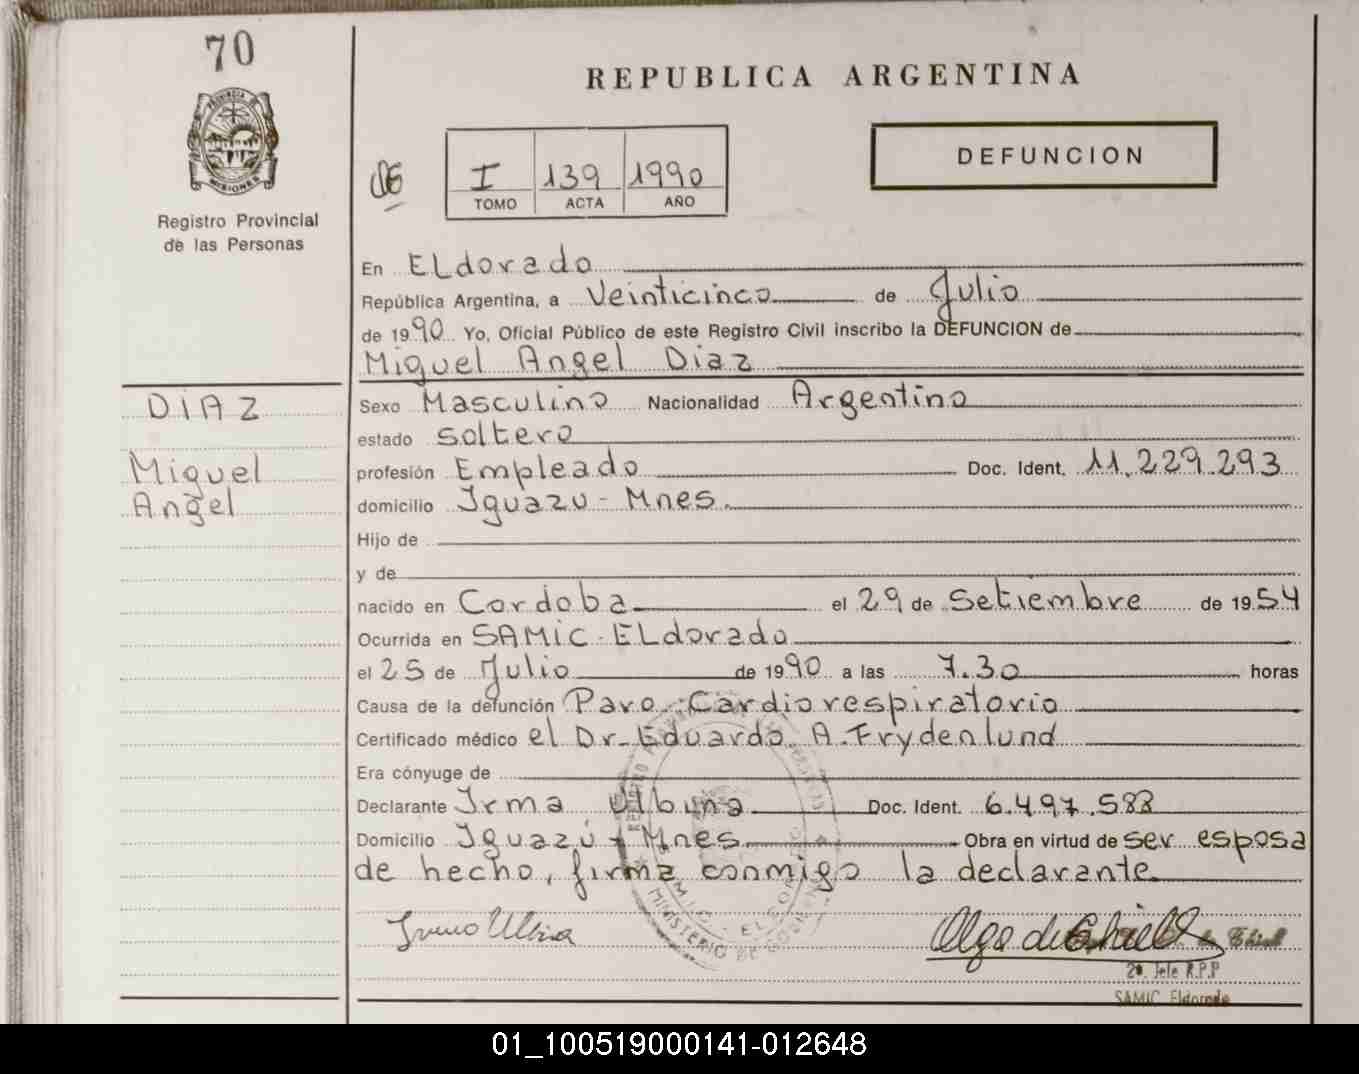 70
PROVINCIA DE
MISIONES
Registro Provincial
de las Personas
REPUBLICA ARGENTINA
DEFUNCION
I 139 1990
TOMO ACTA AÑO
En ELdorado
República Argentina, a Veinticinco de Julio
de 1990 Yo, Oficial Público de este Registro Civil inscribo la DEFUNCION de
Miguel Angel Diaz
DIAZ
Miguel
Angel
Sexo Masculino Nacionalidad Argentino
estado soltero
profesión Empleado Doc. Ident. 11.229.293
domicilio Iguazu - Mnes.
Hijo de
y de
nacido en Cordoba el 29 de Setiembre de 1954
Ocurrida en SAMIC - ELdorado
el 25 de Julio de 1990 a las 7.30 horas
Causa de la defunción Paro Cardiorespiratorio
Certificado médico el Dr. Eduardo A. Frydenlund
Era cónyuge de
Declarante Irma Doc. Ident. 6.497.588
Domicilio Iguazú - Mnes. Obra en virtud de ser esposa
de hecho, firma conmigo la declarante
Olga de Thiel
2º Jefe R.P.P
SAMIC Eldorado
MINISTERIO DE GOBIERNO
01_100519000141-012648